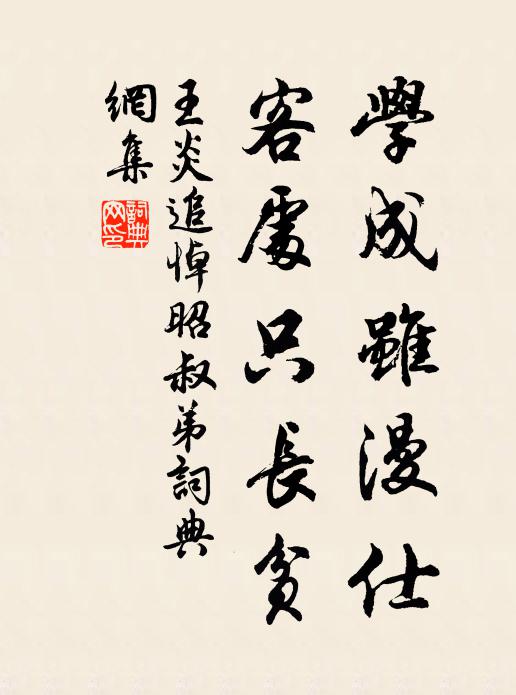 學成雖漫仕
客處只長貧
王炎追悼昭叔弟詞典
網集
詞典網印